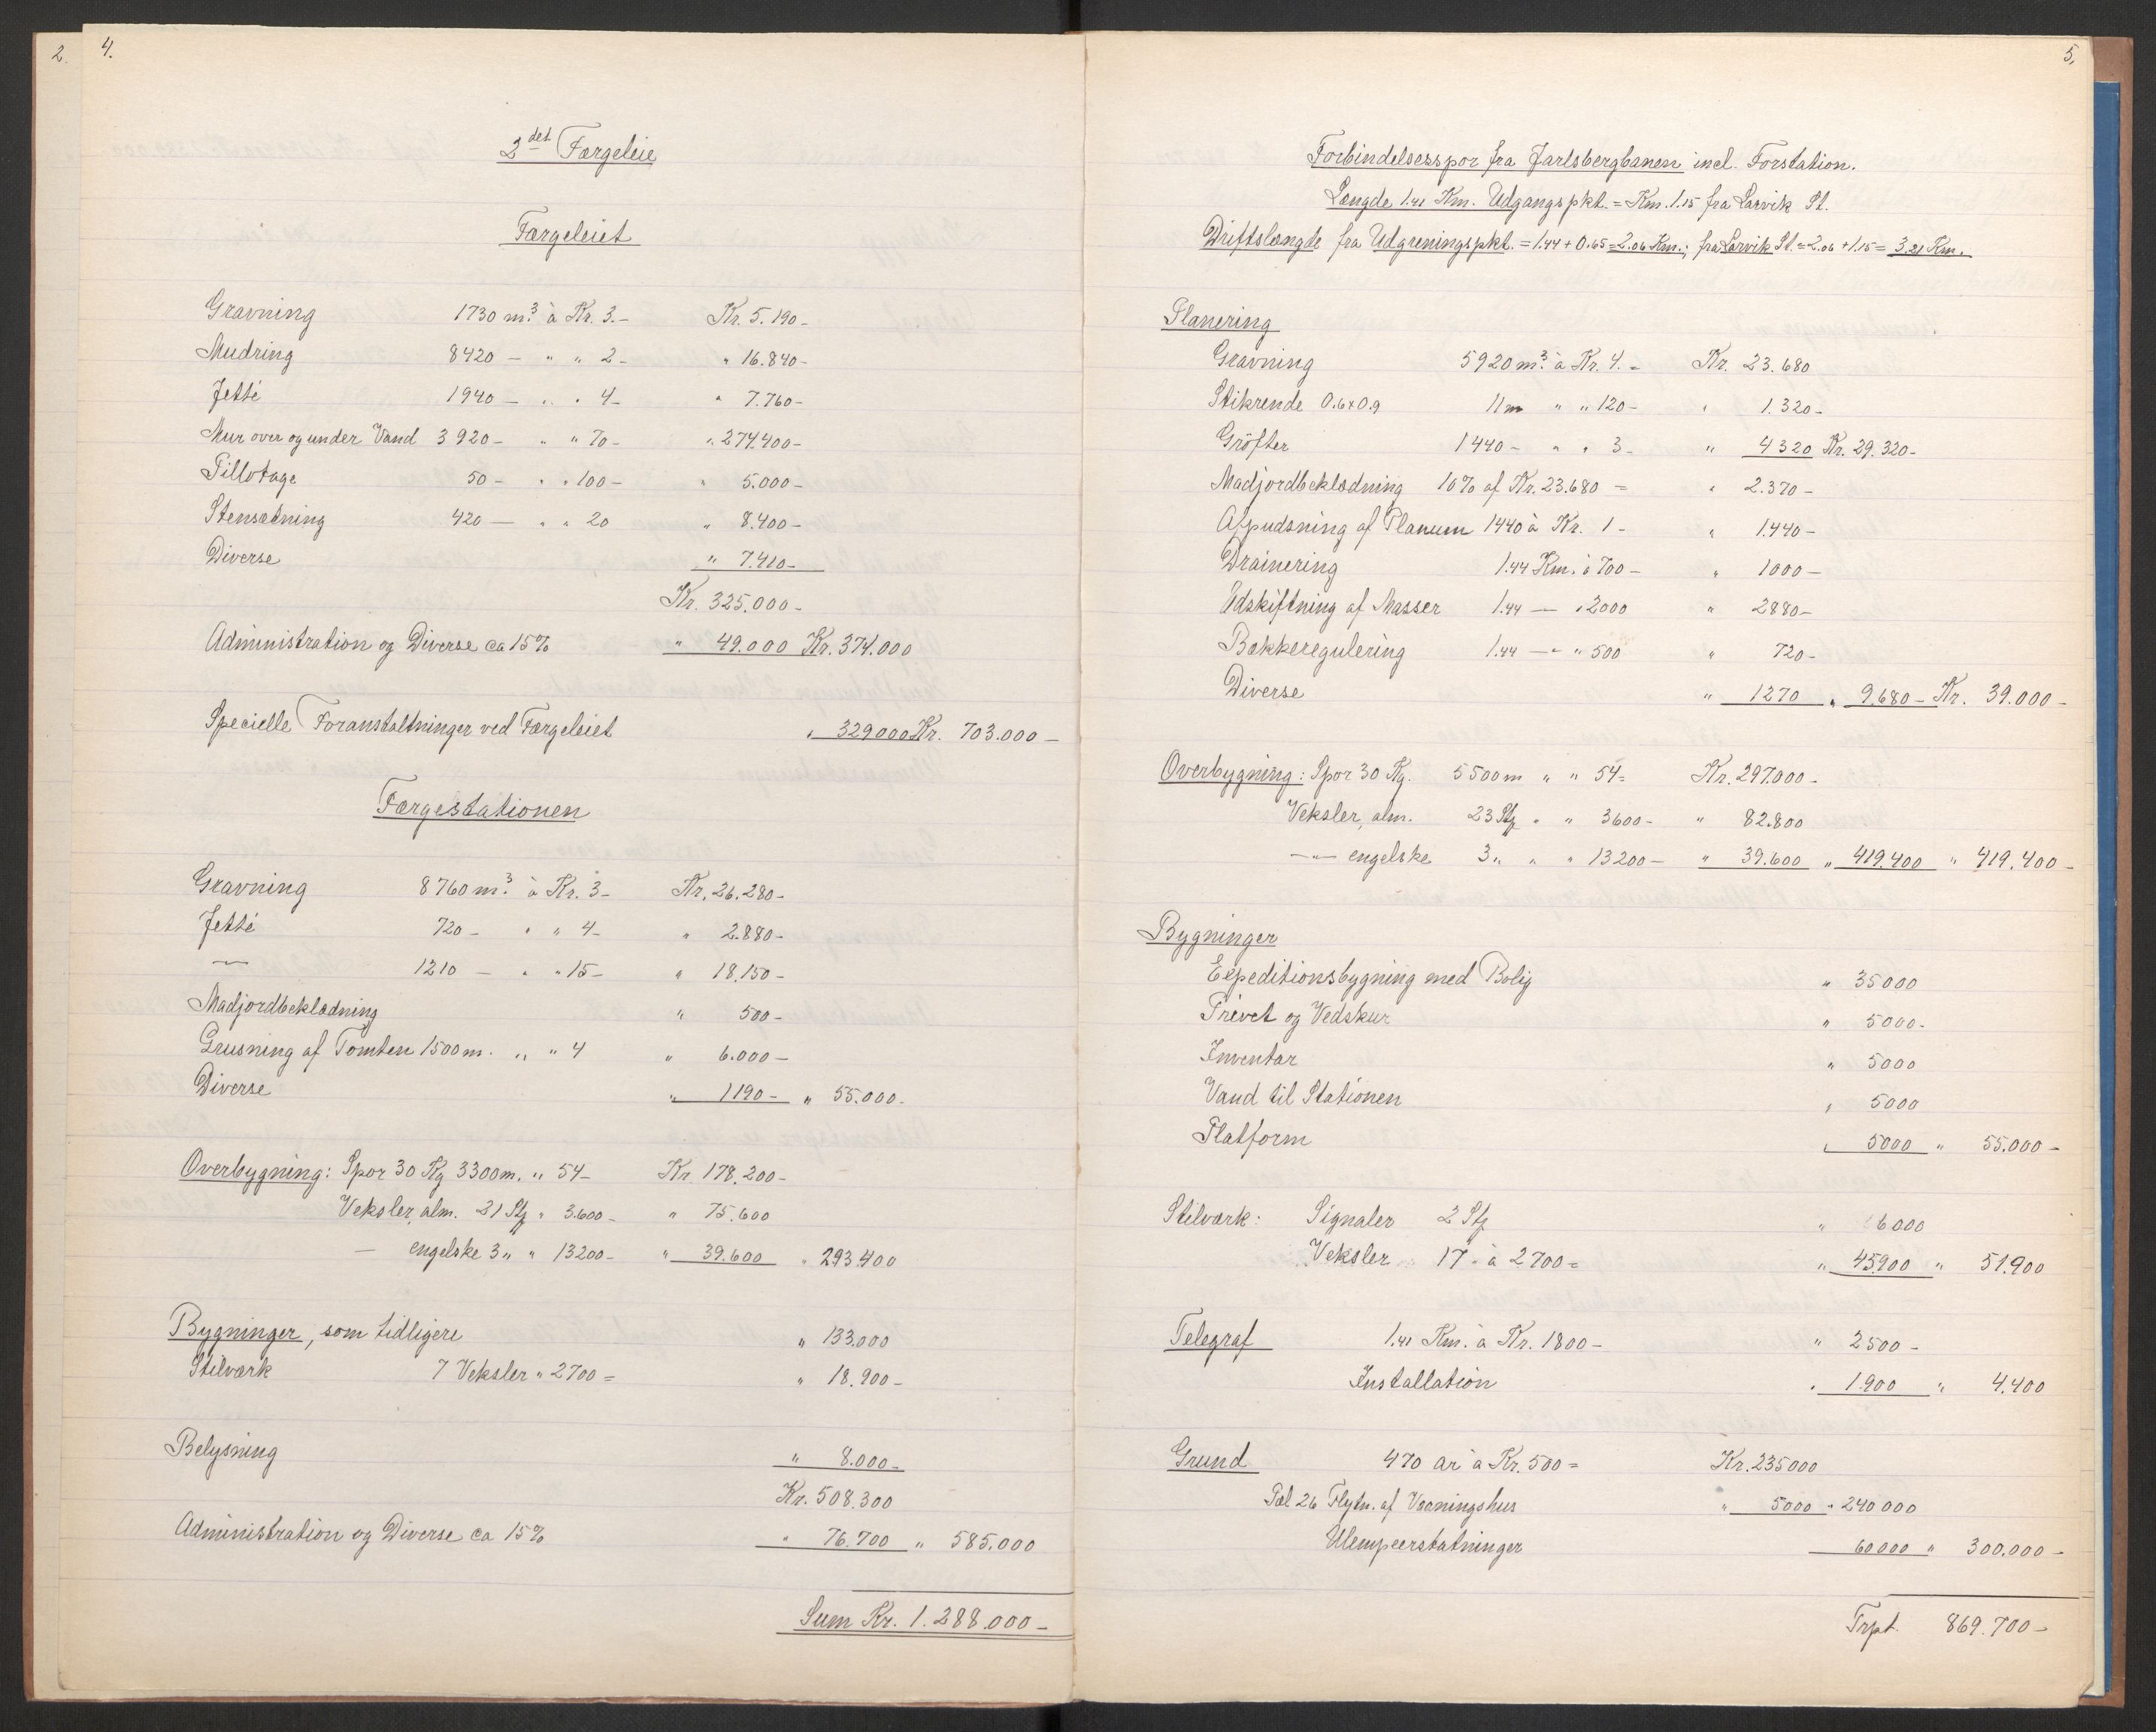 2.
4.
2det Færgeleie
Færgeleiet
Gravning 1730 m.3 à Kr. 3.- Kr. 5.190-
Mudring 8420 - " " 2- " 16.840-
Jetté 1940 - " " 4- " 7.760-
Mur over og under Vand 3920 - " " 70- " 274.400-
Pillotage 50 - " " 100- " 5.000-
Stensætning 420 - " " 20 " 8.400-
Diverse " 7.410-
Kr. 325.000-
Administration og Diverse ca 15% " 49.000 Kr. 374.000
Specielle Foranstaltninger ved Færgeleiet " 329000 Kr. 703.000-
Færgestationen
Gravning 8760 m.3 à Kr. 3- Kr. 26.280-
Jetté 720 - " " 4- " 2.880-
-"- 1210 - " " 15- " 18.150-
Madjordbeklædning " 500-
Grusning af Tomten 1500 m. " " 4 " 6.000-
Diverse " 1190- " 55.000-
Overbygning: Spor 30 Kg 3300 m. " 54- Kr. 178.200-
Veksler, alm. 21 Stg " 3.600- " 75.600
- engelske 3 " " 13200- " 39.600 " 293.400
Bygninger, som tidligere " 133.000
Stilværk 7 Veksler " 2700= " 18.900-
Belysning " 8.000-
Kr. 508.300
Administration og Diverse ca 15% " 76.700 " 585.000
Sum Kr. 1.288.000-
5.
Forbindelsesspor fra Jarlsbergbanen incl. Forstation.
Længde 1.41 Km. Udgangspkt. = Km. 1.15 fra Larvik St.
Driftslængde fra Udgreningspkt. = 1.44 + 0.65 = 2.06 Km.; fra Larvik St. = 2.06 + 1.15 = 3.21 Km.
Planering
Gravning 5920 m.3 à Kr. 4.= Kr. 23.680
Stikrende 0.6x0.9 11m " " 120- " 1.320-
Gröfter 1440 - " " 3- " 4320 Kr. 29.320-
Madjordbeklædning 10% af Kr. 23.680 = " 2.370-
Afpudsning af Planum 1440 à Kr. 1- " 1.440-
Drainering 1.44 Km. à 700- " 1000-
Udskiftning af Masser 1.44 - " 2000 " 2880-
Bækkeregulering 1.44 -"- " 500 " 720-
Diverse " 1270 " 9.680- Kr. 39.000-
Overbygning: Spor 30 Kg. 5500 m " " 54= Kr. 297.000-
Veksler, alm. 23 Stg " " 3600- " 82.800
-"- engelske 3 " " " 13200- " 39.600 " 419.400 " 419.400-
Bygninger
Expeditionsbygning med Bolig " 35000
Privet og Vedskur " 5000-
Inventar " 5000
Vand til Stationen " 5000
Platform " 5000 " 55.000-
Stilværk: Signaler 2 Stg " 6000
Veksler 17 - à 2700= " 45.900 " 51.900
Telegraf 1.41 Km. à Kr. 1800- " 2500-
Installation " 1.900 " 4.400
Grund 470 ar à Kr. 500= Kr. 235000
Pæl 26 Flytn. af Vaaningshus " 5000 " 240000
Ulempeerstatninger 60000 " 300.000-
Trpt. 869.700-